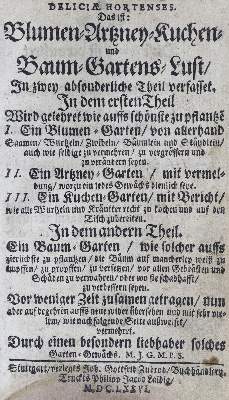 DELICIÆ HORTENSES.
Das ist:
Blumen-Artzney-Kuchen-
und
Baum-Gartens-Lust/
In zwey absonderliche Theil verfasset.
In dem ersten Theil
Wird gelehret wie auffs schönste zu pflantzē
I. Ein Blumen-Garten/ von allerhand
Saamen/ Wurtzeln/ Zwibeln/ Bäumlein und Stäudlein/
auch wie selbige zu vermehren/ zu vergrössern und
zu verändern seyen.
II. Ein Artzney-Garten/ mit vermel-
dung/ worzu ein jedes Gewächs dienlich seye.
III. Ein Kuchen-Garten/ mit Bericht/
wie alle Wurtzeln und Kräuter recht zu kochen und auf den
Tisch zubereiten.
In dem andern Theil.
Ein Baum-Garten/ wie solcher auffs
zierlichste zu pflantzen/ die Bäum auf mancherley weiß zu
impffen/ zu propffen/ zu versetzen/ vor allen Gebrästen und
Schäden zu verwahren/ oder wo sie schadhafft/
zu verbessern seyen.
Vor weniger Zeit zusamen getragen/ nun
aber auf begehren auffs neue wider übersehen und mit sehr
wie nachfolgende Seite außweiset/
vermehrt.
Durch einen besondern liebhaber solches
Garten-Gewächs. M. J. G. M. P. S.
Stuttgart/ verlegts Joh. Gottfrid Zubrod/ Buchhändlern.
Truckts Philipp Jacob
M.DC.LXXVI.